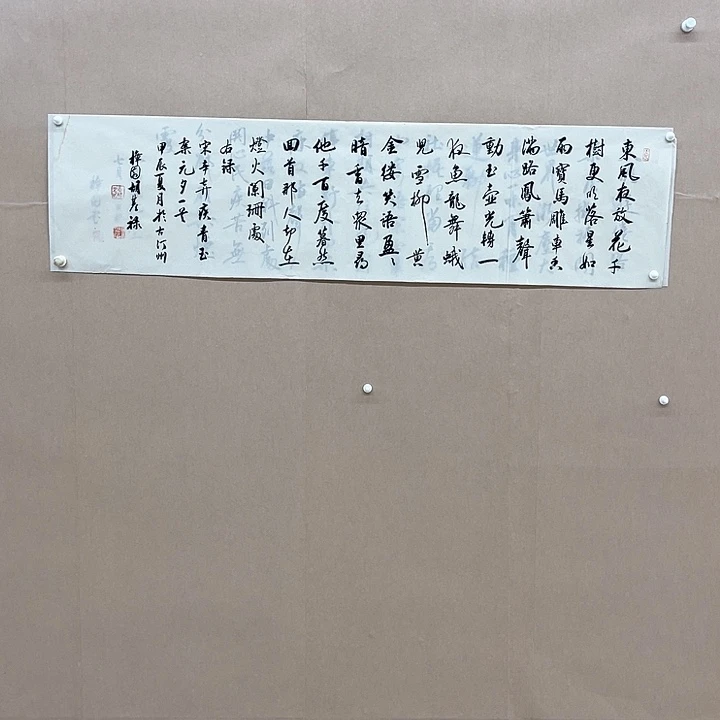 東風夜放花千
樹更吹落星如
雨寶馬雕車香
滿路鳳簫聲
動玉壺光轉一
夜魚龍舞蛾
兒雪柳黃
金縷笑語盈〻
暗香去衆里尋
他千百度暮然
回首那人却在
燈火闌珊處
右録
宋辛弃疾青玉
案元夕一首
甲辰夏月於古汀州